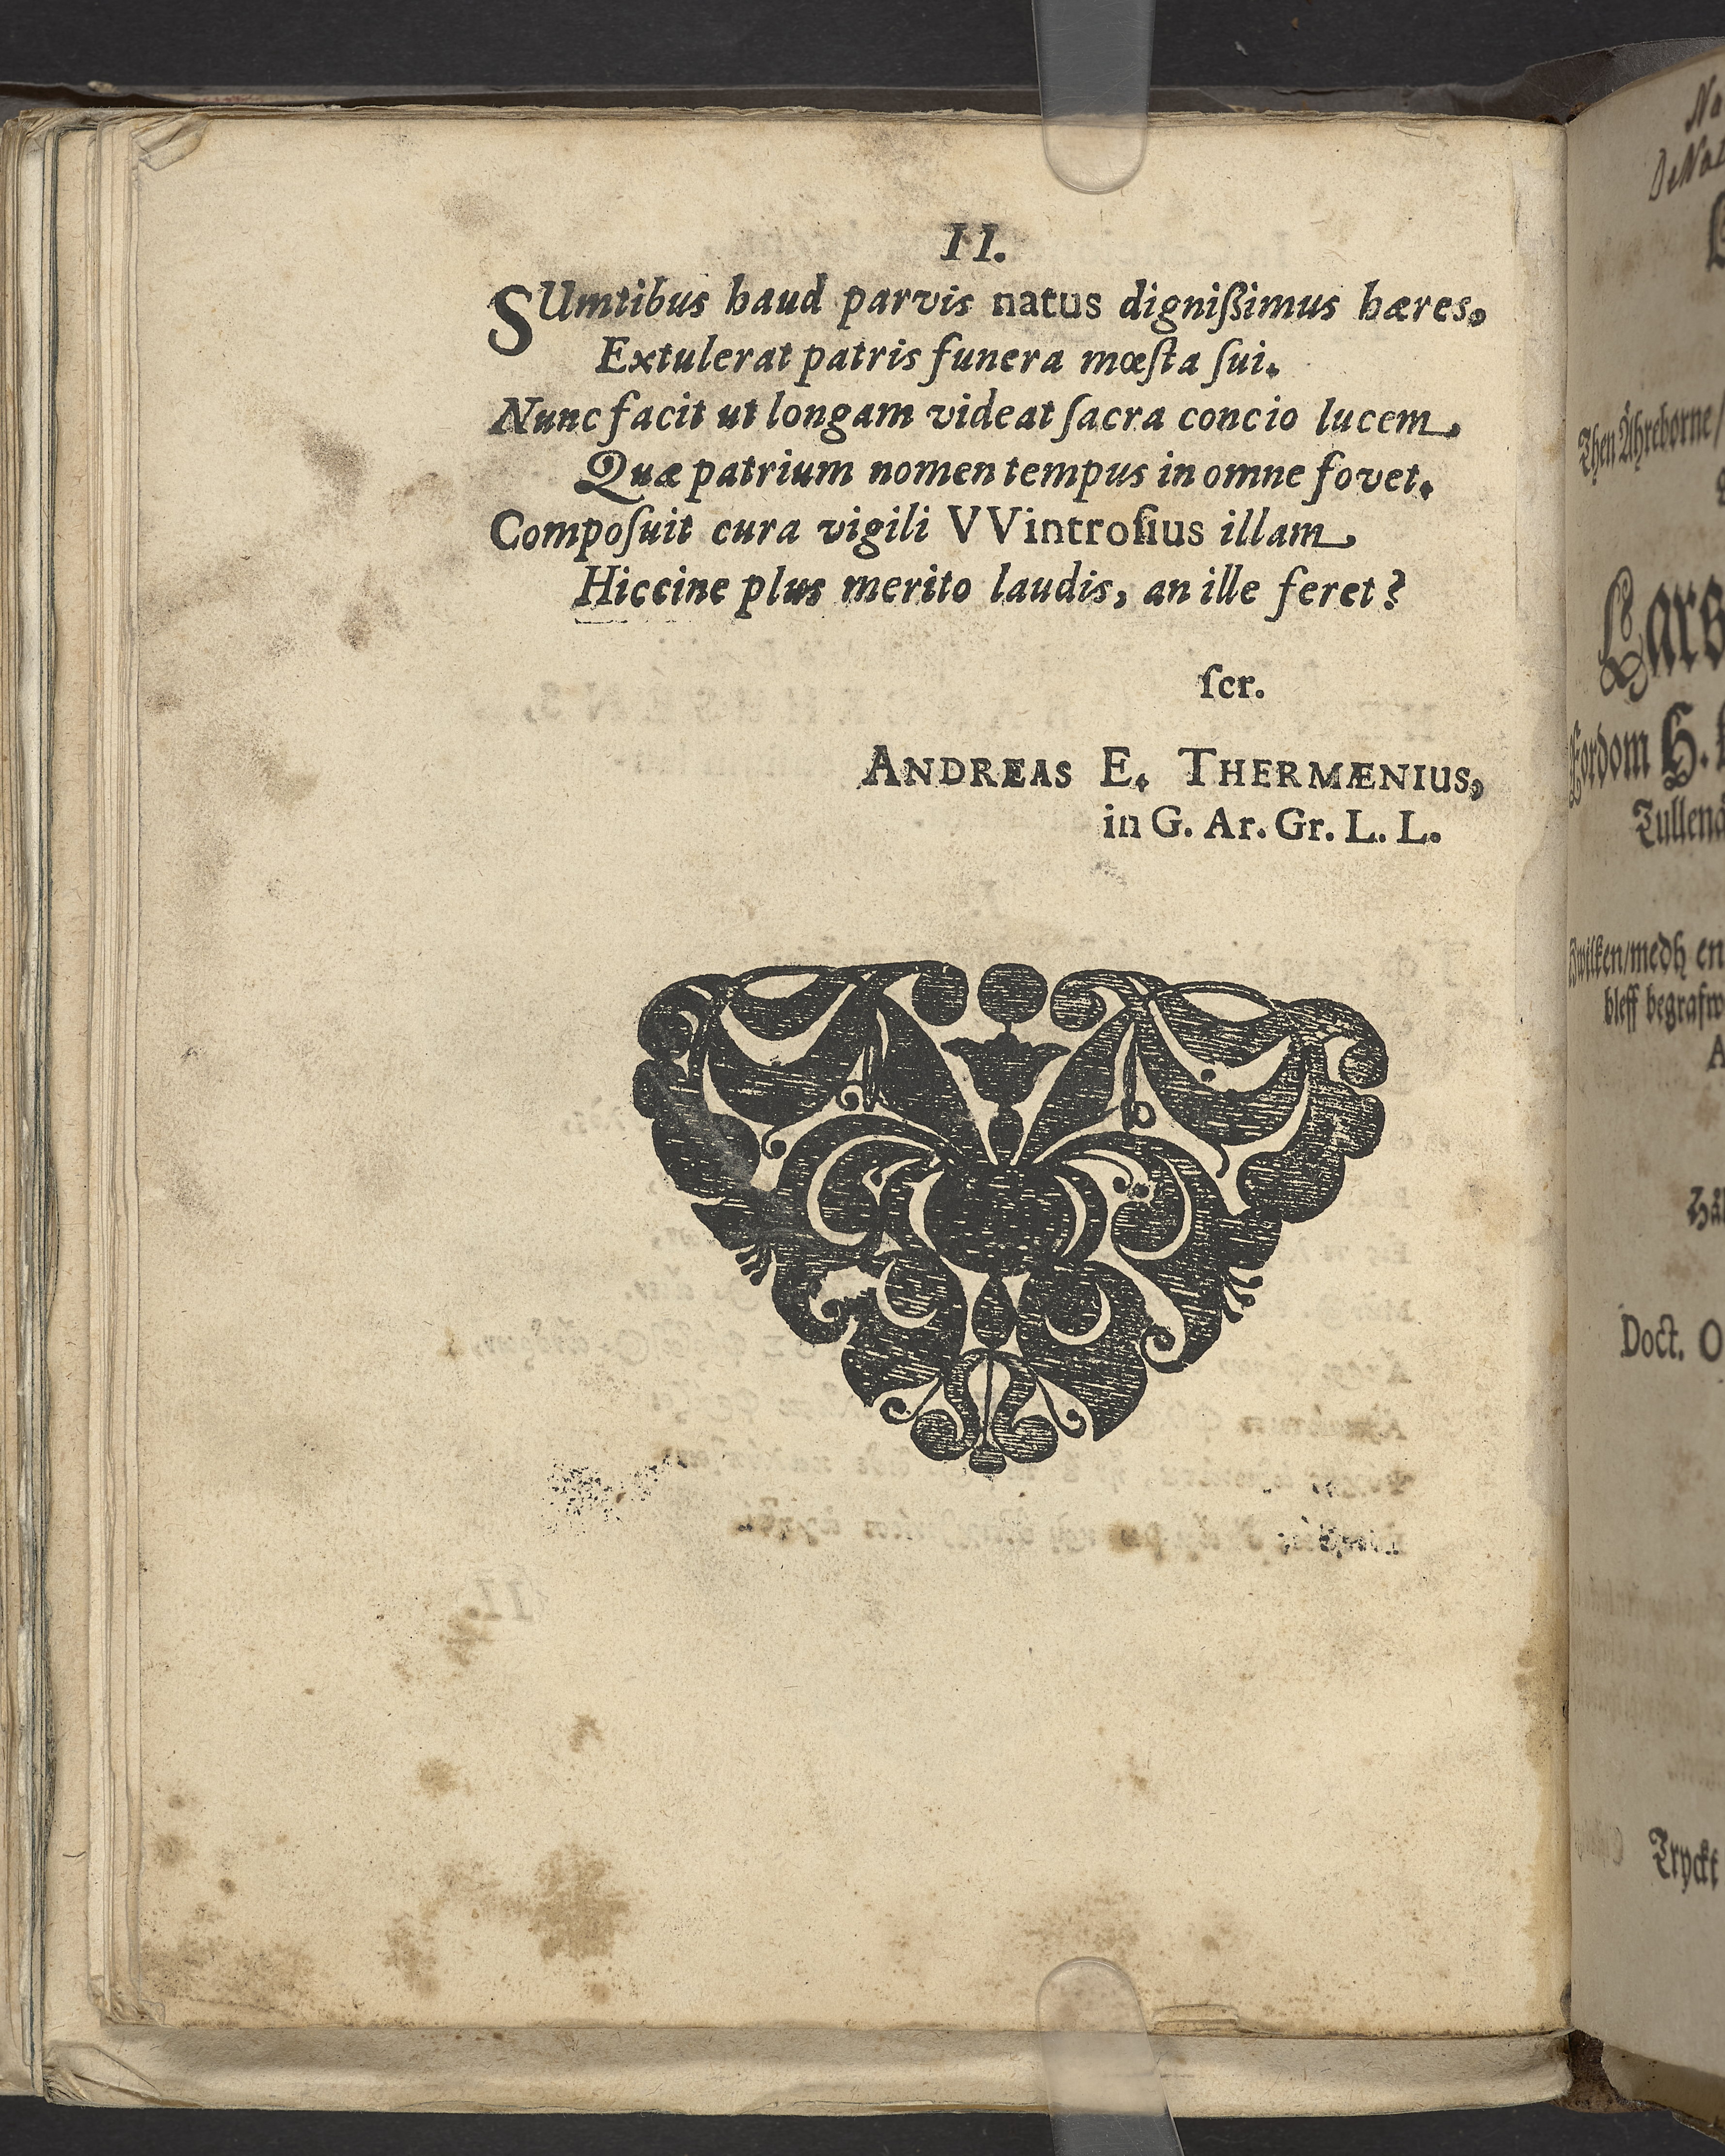 II.
SUmtibus haud parvis natus dignißimus hæres,
Extulerat patris funera mœſta ſui.
Nunc facit ut longam videat ſacra concio lucem,
Quæ patrium nomen tempus in omne fovet.
Compoſuit cura vigili VVintroſius illam
Hiccine plus merito laudis, an ille feret?
ſcr.
ANDREAS E. THERMÆNIUS,
in G. Ar. Gr. L. L.
Then Ähreborne/
Lars
Fordom H.
Hwilken/medh en
bleff begrafw
Doct. O
Tryckt